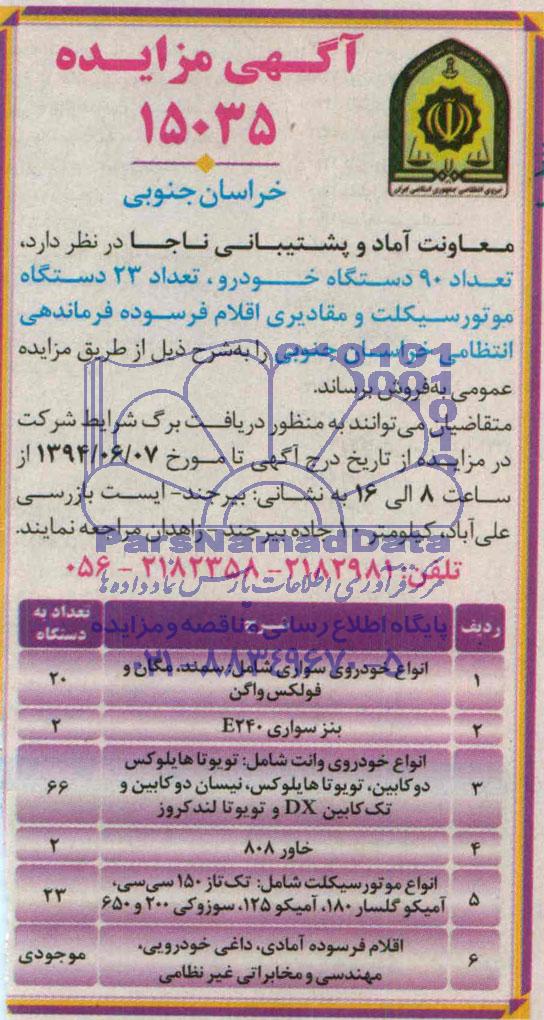 آگهی مزایده
۱۵۰۳۵
خراسان جنوبی
نیروی انتظامی جمهوری اسلامی ایران
معاونت آماد و پشتیبانی ناجا در نظر دارد،
تعداد ۹۰ دستگاه خودرو، تعداد ۲۳ دستگاه
موتورسیکلت و مقادیری اقلام فرسوده فرماندهی
انتظامی خراسان جنوبی را به‌شرح ذیل از طریق مزایده
عمومی به‌فروش برساند.
متقاضیان می‌توانند به منظور دریافت برگ شرایط شرکت
در مزایده از تاریخ درج آگهی تا مورخ ۱۳۹۴/۰۶/۰۷ از
ساعت ۸ الی ۱۶ به نشانی: بیرجند- ایست بازرسی
علی‌آباد، کیلومتر ۱۰ جاده بیرجند- زاهدان مراجعه نمایند.
ParsNamadData
تلفن: ۲۱۸۲۹۸۲- ۲۱۸۲۳۵۸ - ۰۵۶
مرکز فرآوری اطلاعات پارس نماد داده‌ها
پایگاه اطلاع رسانی مناقصه و مزایده
۰۲۱-۸۸۳۴۹۶۷۰-۵
ردیف شرح تعداد به دستگاه
۱ انواع خودروی سواری شامل: سمند، مگان و
فولکس واگن ۲۰
۲ بنز سواری E۲۴۰ ۲
۳ انواع خودروی وانت شامل: تویوتا هایلوکس
دوکابین، تویوتا هایلوکس، نیسان دوکابین و
تک‌کابین DX و تویوتا لندکروز ۶۶
۴ خاور ۸۰۸ ۲
۵ انواع موتورسیکلت شامل: تک‌تاز ۱۵۰ سی‌سی،
آمیکو گلسار ۱۸۰، آمیکو ۱۲۵، سوزوکی ۲۰۰ و ۶۵۰ ۲۳
۶ اقلام فرسوده آمادی، داغی خودرویی،
مهندسی و مخابراتی غیر نظامی موجودی